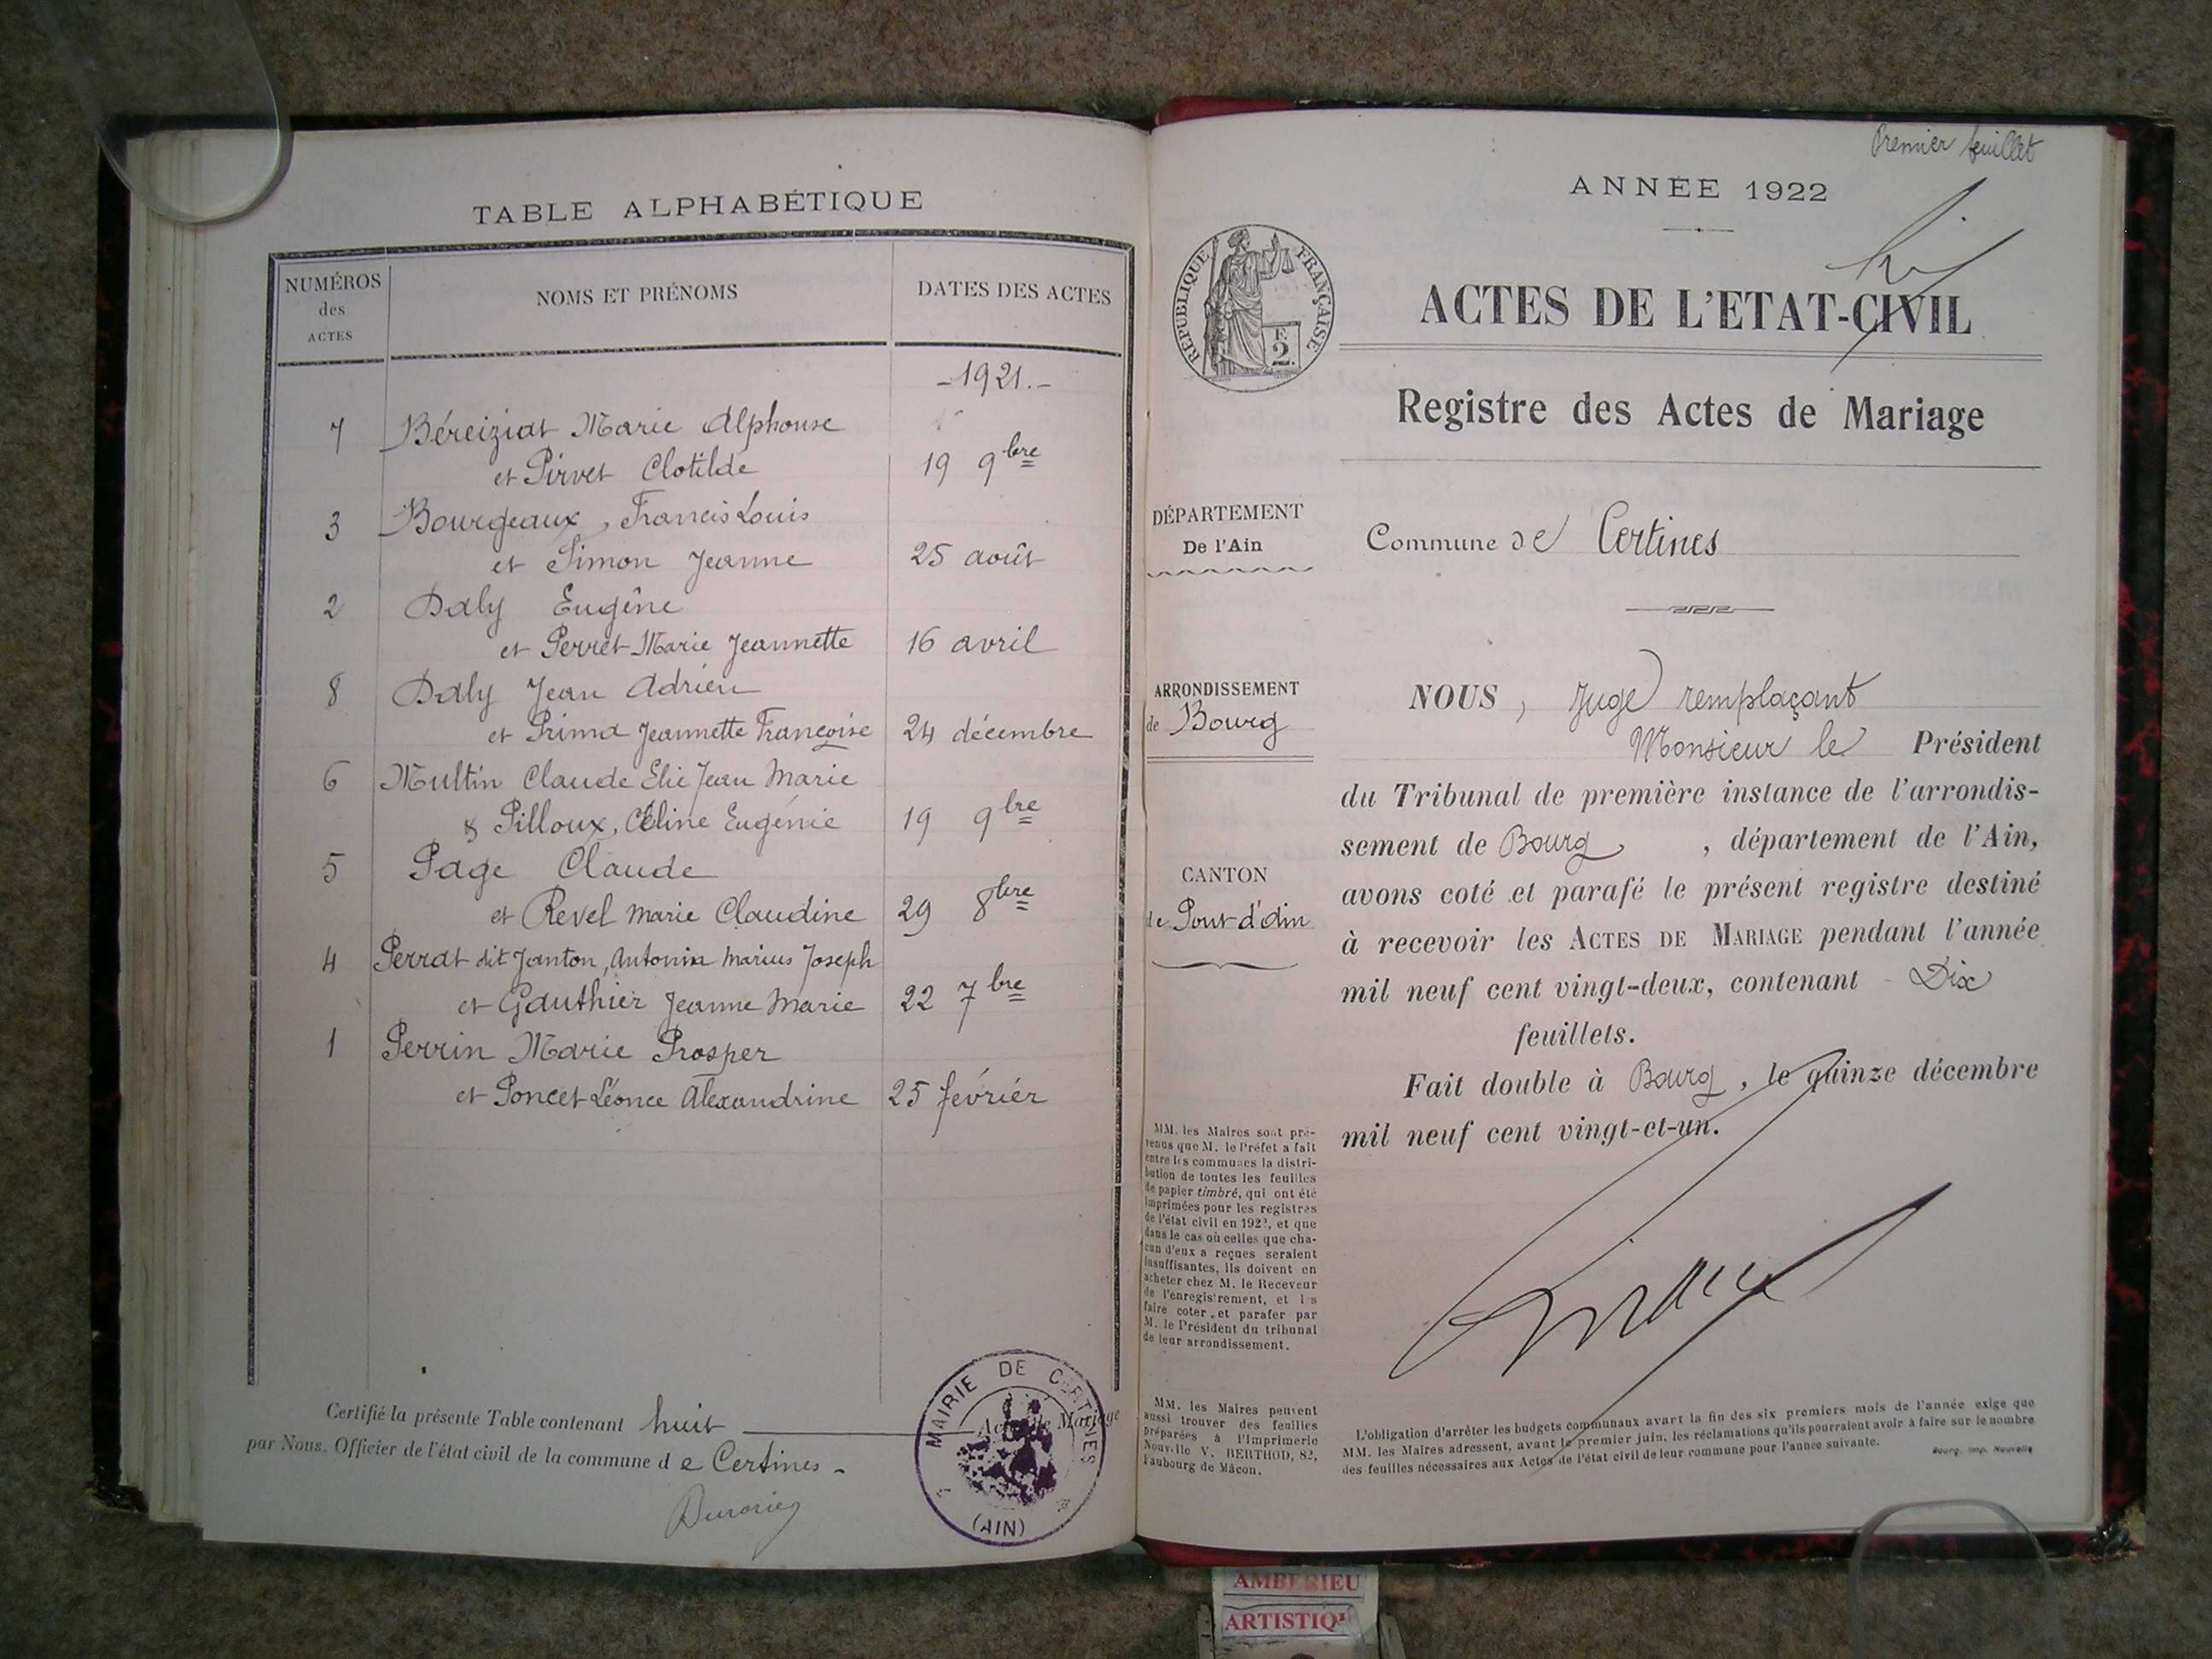 TABLE ALPHABÉTIQUE
NUMÉROS des ACTES
NOMS ET PRÉNOMS
DATES DES ACTES
- 1921. -
7 Béreiziat Marie Alphonse
et Pirvet Clotilde 19 9bre
3 Bourgeaux, Francis Louis
et Simon Jeanne 25 août
2 Daly Eugène
et Perret Marie Jeannette 16 avril
8 Daly Jean Adrien
et Prima Jeannette Françoise 24 décembre
6 Multin Claude Elie Jean Marie
& Pilloux, Céline Eugénie 19 9bre
5 Page Claude
et Revel Marie Claudine 29 8bre
4 Perrat dit Janton, Antonin Marius Joseph
et Gauthier Jeanne Marie 22 7bre
1 Perrin Marie Prosper
et Poncet Léonce Alexandrine 25 février
Certifié la présente Table contenant huit Actes de Mariage
par Nous. Officier de l'état civil de la commune de Certines -
MAIRIE DE CERTINES
(AIN)
Premier feuillet
ANNÉE 1922
RÉPUBLIQUE FRANÇAISE
F. 2.
ACTES DE L'ETAT-CIVIL
Registre des Actes de Mariage
DÉPARTEMENT
De l'Ain
Commune de Certines
ARRONDISSEMENT
de Bourg
CANTON
de Pont-d'Ain
NOUS, Juge remplaçant
Monsieur le Président
du Tribunal de première instance de l'arrondis-
sement de Bourg, département de l'Ain,
avons coté et parafé le présent registre destiné
à recevoir les ACTES DE MARIAGE pendant l'année
mil neuf cent vingt-deux, contenant Dix
feuillets.
Fait double à Bourg, le quinze décembre
mil neuf cent vingt-et-un.
MM. les Maires sont pré-
venus que M. le Préfet a fait
entre les communes la distri-
bution de toutes les feuilles
de papier timbré, qui ont été
imprimées pour les registres
de l'état civil en 1922, et que
dans le cas où celles que cha-
cun d'eux a reçues seraient
insuffisantes, ils doivent en
acheter chez M. le Receveur
de l'enregistrement, et les
faire coter et parafer par
M. le Président du tribunal
de leur arrondissement.
MM. les Maires peuvent
aussi trouver des feuilles
préparées à l'Imprimerie
Nouvelle V. BERTHOD, 82,
Faubourg de Mâcon.
L'obligation d'arrêter les budgets communaux avant la fin des six premiers mois de l'année exige que
MM. les Maires adressent, avant le premier juin, les réclamations qu'ils pourraient avoir à faire sur le nombre
des feuilles nécessaires aux Actes de l'état civil de leur commune pour l'année suivante.
Bourg, Imp. Nouvelle
AMBERIEU
ARTISTIQ